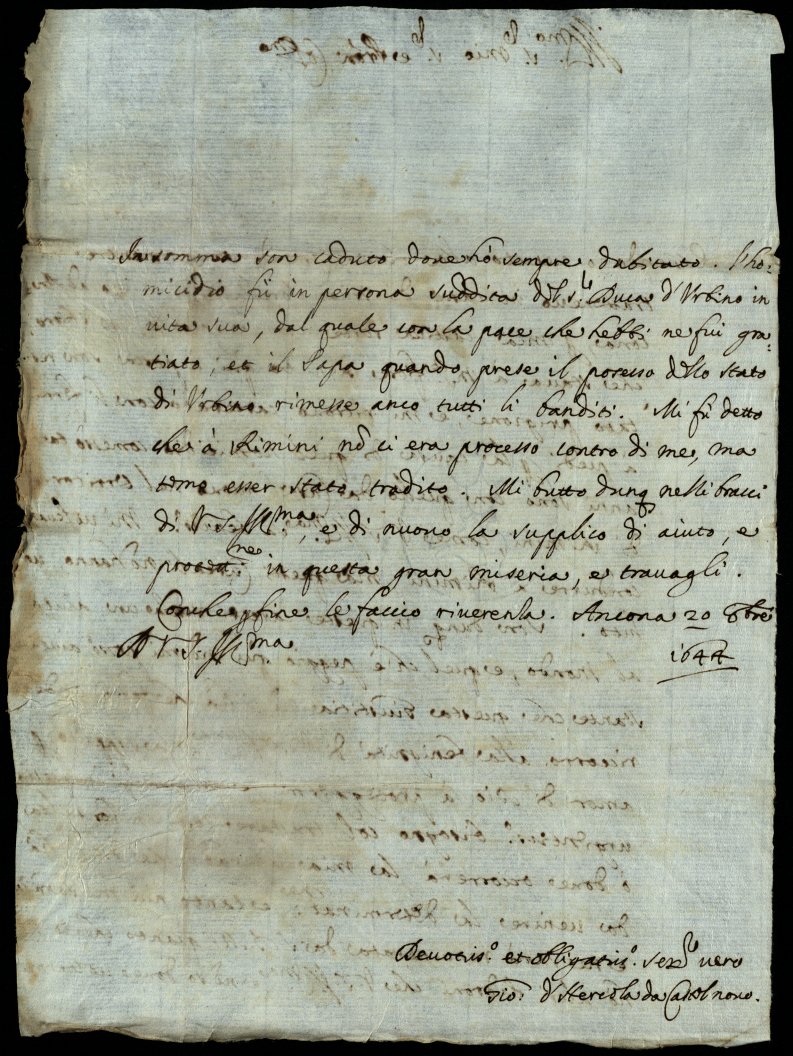 In somma son caduto dove hò sempre dubitato. l'ho:
micidio fù in persona suddita del s.r Duca d'Vrbino in
vita sua, dal quale con la pace che hebbi ne fui gra:
tiato, et il Papa quando prese il possesso dello stato
di Vrbino rimesse anco tutti li banditi. Mi fù detto
che à Rimini nõ ci era processo contro di me, ma
temo esser stato tradito. Mi butto dunq nelli bracci
di V. S. Ill.ma, e di nuovo la supplico di aiuto, e
protett.ne in questa gran miseria, e travagli.
Con che p fine le faccio riverenza. Ancona 20 8bre
D V S Ill.ma
1644
Devotiss.o et obligatiss.o ser.re vero
Gio: d'Hercola da Castel novo.